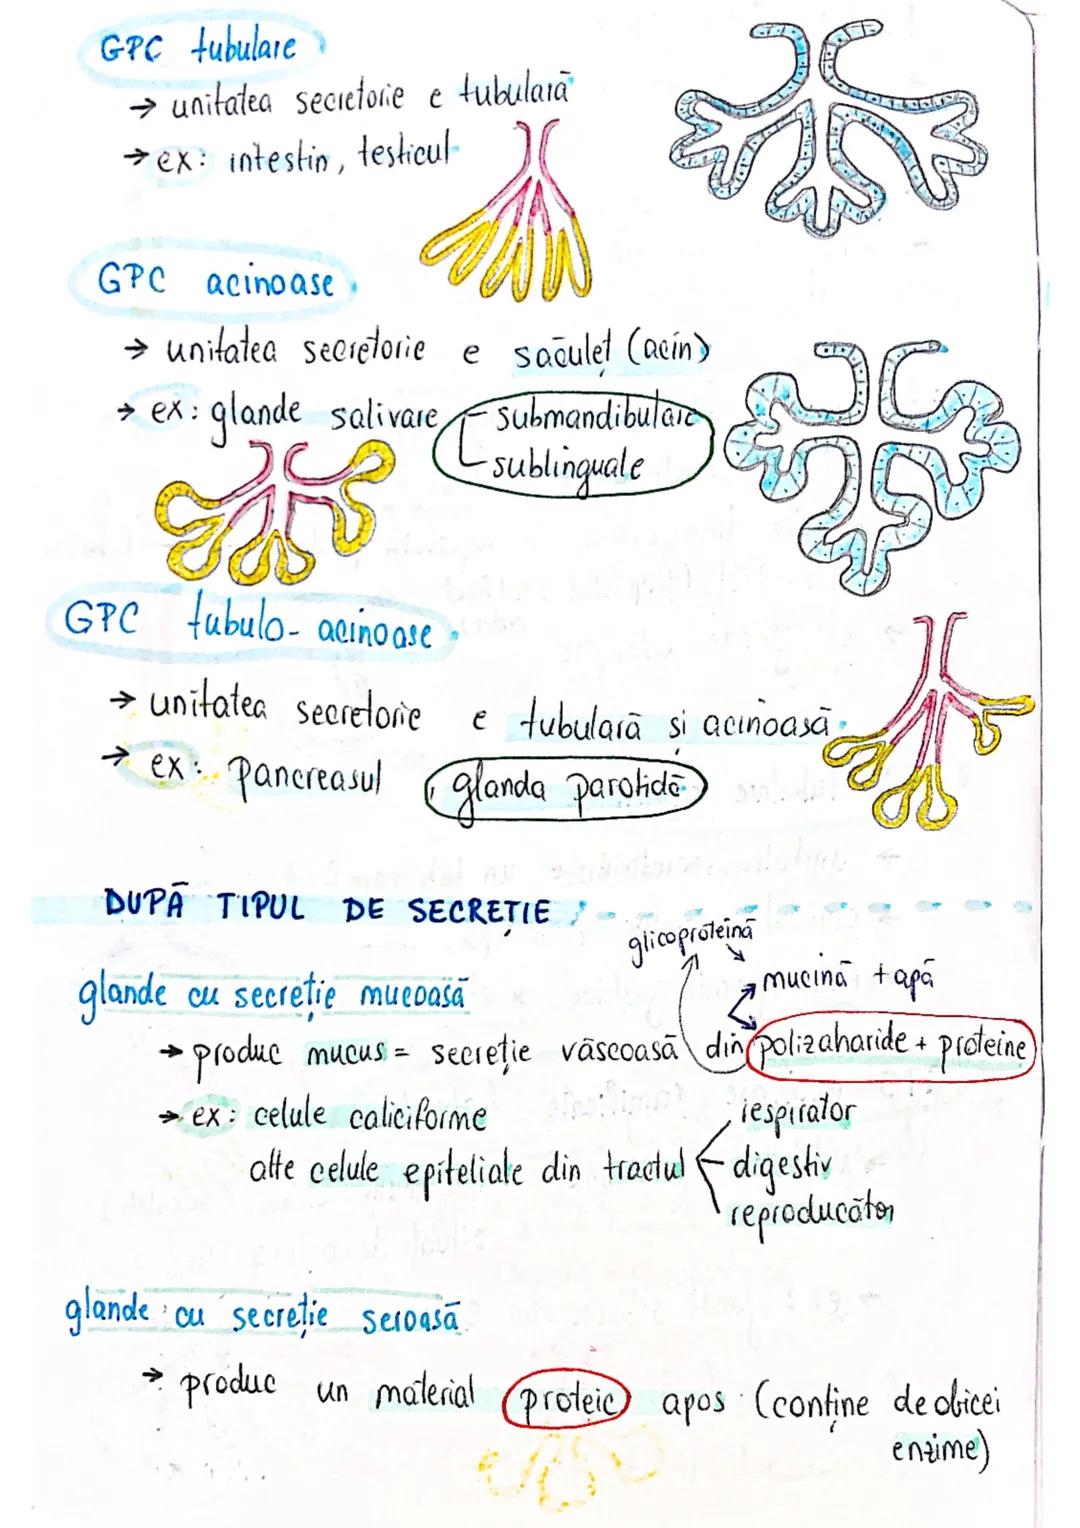 GPC tubulare
→ unitatea secretorie e tubulară
→ ex: intestin, testicul
GPC acinoase
→ unitatea secretorie e săculeț (acin)
→ ex: glande salivare submandibulare
sublinguale
GPC tubulo-acinoase
→ unitatea secretorie e tubulară și acinoasă
→ ex: Pancreasul, glanda parotidă
DUPĂ TIPUL DE SECREȚIE
glicoproteină
glande cu secreție mucoasă
mucină + apă
→ produc mucus = secreție vâscoasă din polizaharide + proteine
→ ex: celule caliciforme
respirator
alte celule epiteliale din tractul digestiv
reproducător
glande cu secreție seroasă
→ produc un material proteic apos (conține de obicei
enzime)